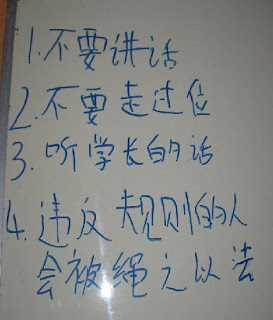 1.不要讲话
2.不要走过位
3.听学长的话
4.违反规则的人
会被绳之以法